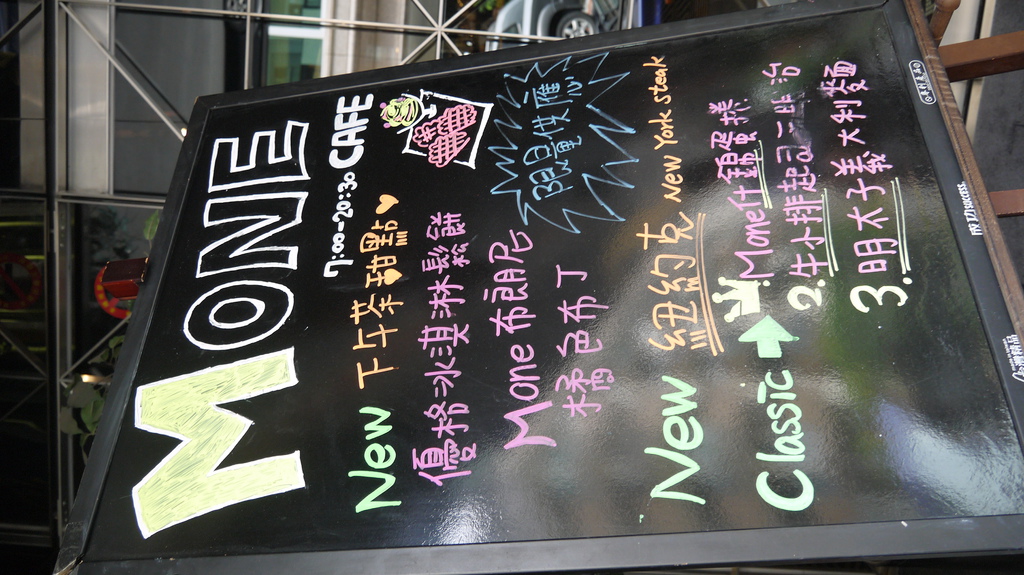 MONE
7:00-20:30 CAFE
New 下午茶甜點
優格冰淇淋鬆餅
Mone布朗尼
橘色布丁
限量供應
New 紐約克 New York steak
Classic → Mone什錦蛋捲
2. 牛小排起司三明治
3. 明太子義大利麵
成功success